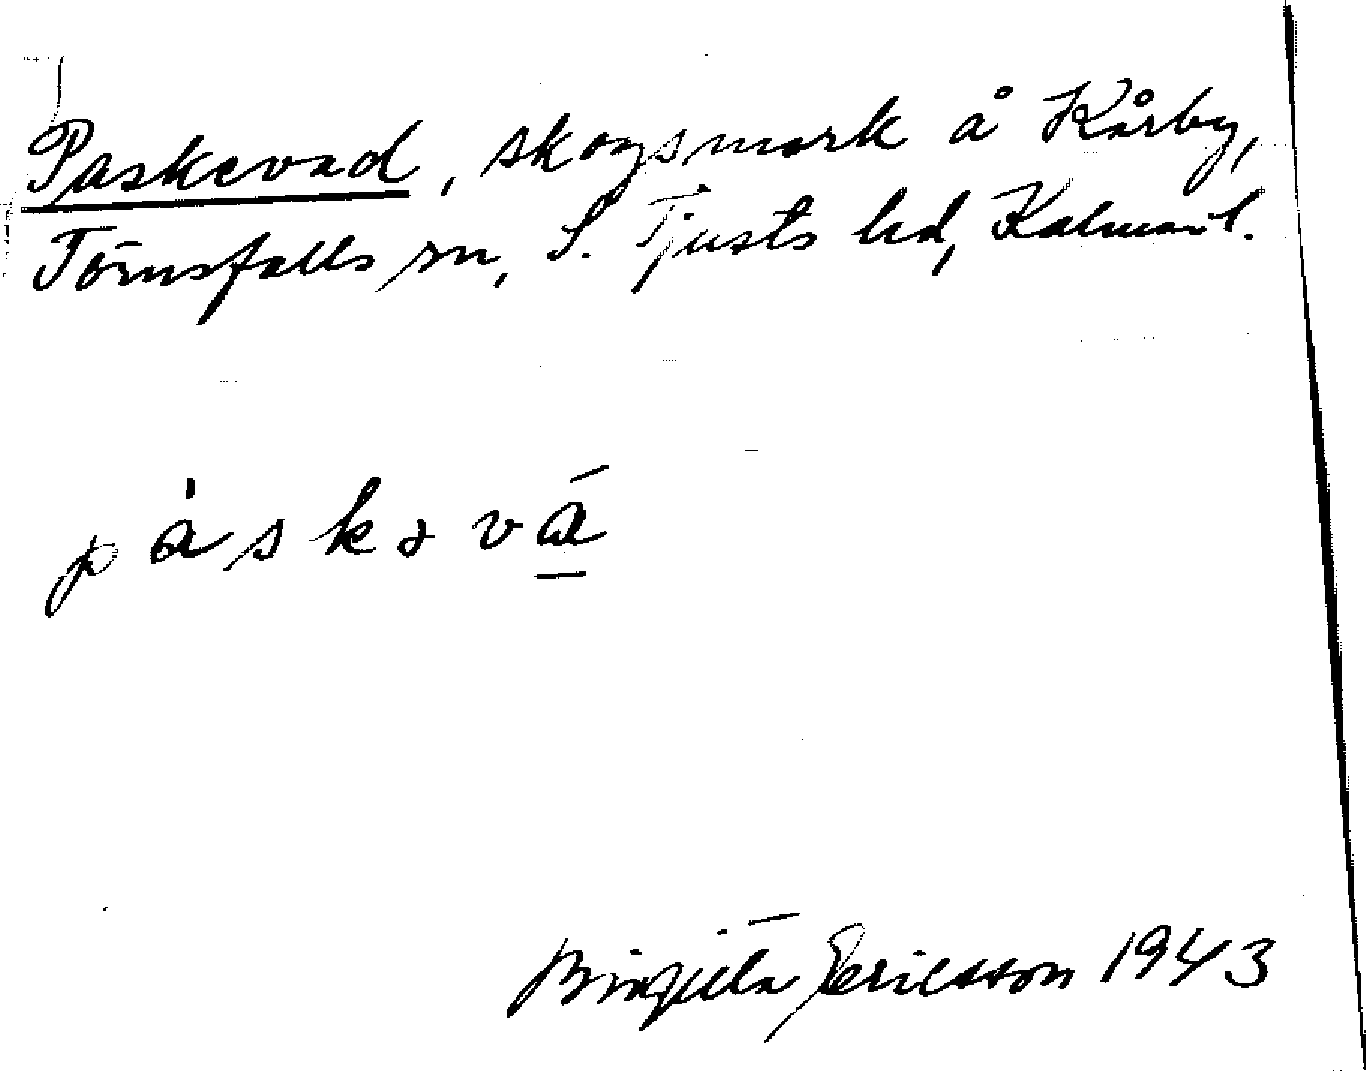 Paskevad, skogsmark å Kårby,
Törnsfalls sn, S. Tjusts hd, Kalmar l.
pàskəvá
Birgitta Ericsson 1943